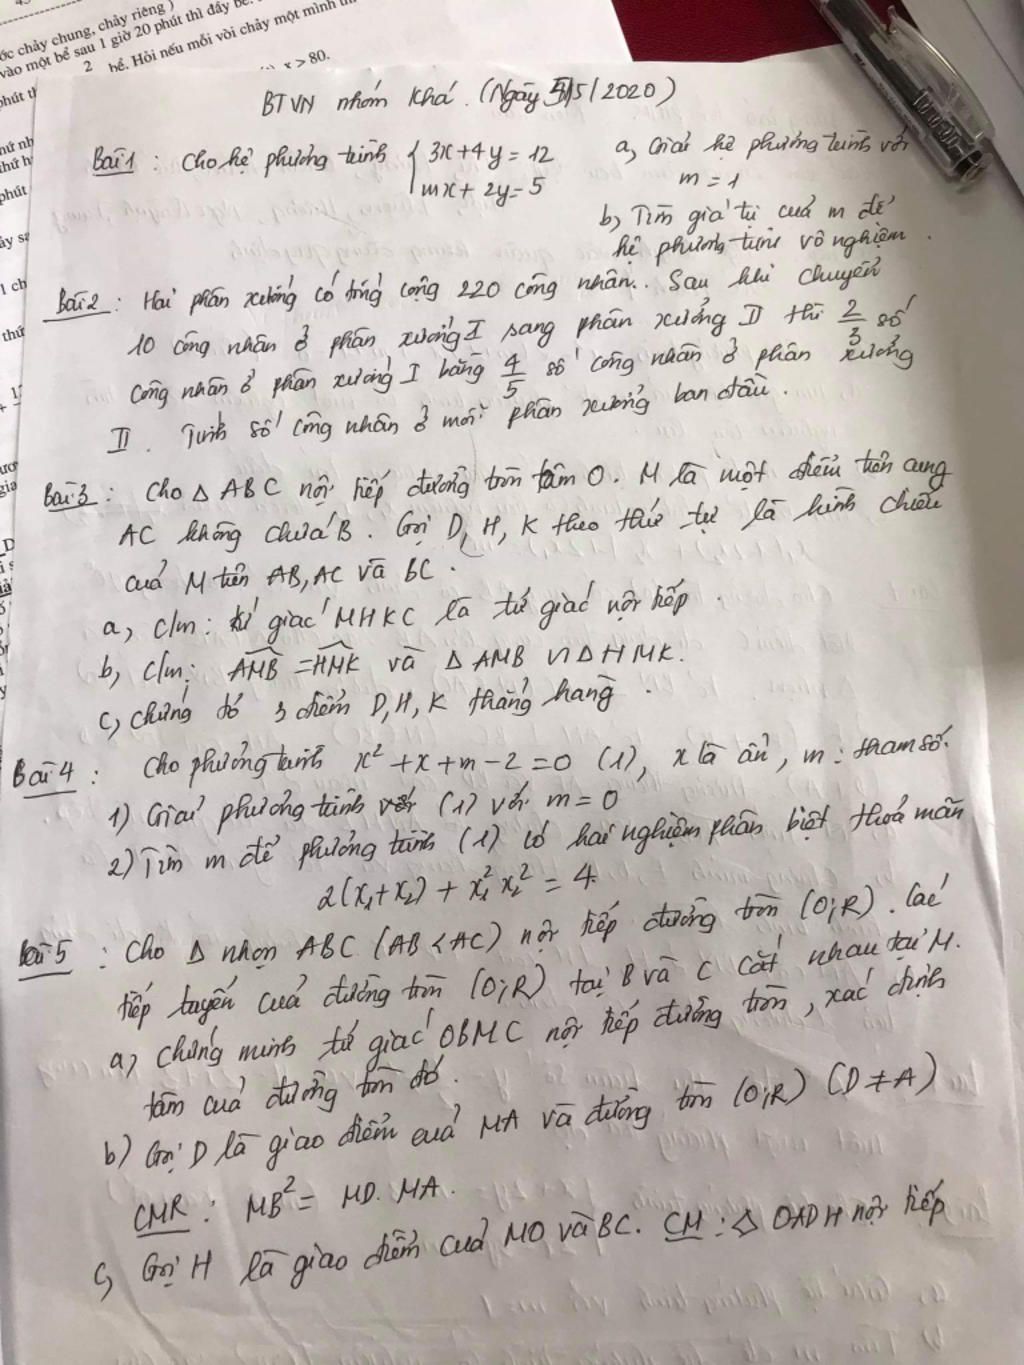 ớc chảy chung, chảy riêng )
vào một bể sau 1 giờ 20 phút thì đầy bể.
2
bể. Hỏi nếu mỗi vòi chảy một mình th
x > 80.
BTVN nhóm khá. (Ngày 5/5/2020)
Bài 1 : Cho hệ phương trình { 3x+4y=12
mx+2y=5
a, Giải hệ phương trình với
m=1
b, Tìm giá trị của m để
hệ phương trình vô nghiệm.
Bài 2 : Hai phân xưởng có tổng cộng 220 công nhân. Sau khi chuyển
10 công nhân ở phân xưởng I sang phân xưởng II thì 2/3 số
công nhân ở phân xưởng I bằng 4/5 số công nhân ở phân xưởng
II. Tính số công nhân ở mỗi phân xưởng ban đầu.
Bài 3 : Cho △ ABC nội tiếp đường tròn tâm O. M là một điểm trên cung
AC không chứa B. Gọi D, H, K theo thứ tự là hình chiếu
của M trên AB, AC và BC.
a, c/m: tứ giác MHKC là tứ giác nội tiếp.
b, c/m: AMB = HMK và △ AMB ∽ △ HMK.
c, chứng tỏ 3 điểm D, H, K thẳng hàng.
Bài 4 : Cho phương trình x² + x + m - 2 = 0 (1), x là ẩn, m : tham số.
1) Giải phương trình (1) với m = 0
2) Tìm m để phương trình (1) có hai nghiệm phân biệt thoả mãn
2(x₁+x₂) + x₁²x₂² = 4.
Bài 5 : Cho △ nhọn ABC (AB < AC) nội tiếp đường tròn (O;R). Các
tiếp tuyến của đường tròn (O;R) tại B và C cắt nhau tại M.
a, chứng minh tứ giác OBMC nội tiếp đường tròn, xác định
tâm của đường tròn đó.
b) Gọi D là giao điểm của MA và đường tròn (O;R) (D ≠ A)
CMR : MB² = MD. MA.
c, Gọi H là giao điểm của MO và BC. CM : ◇ OADH nội tiếp